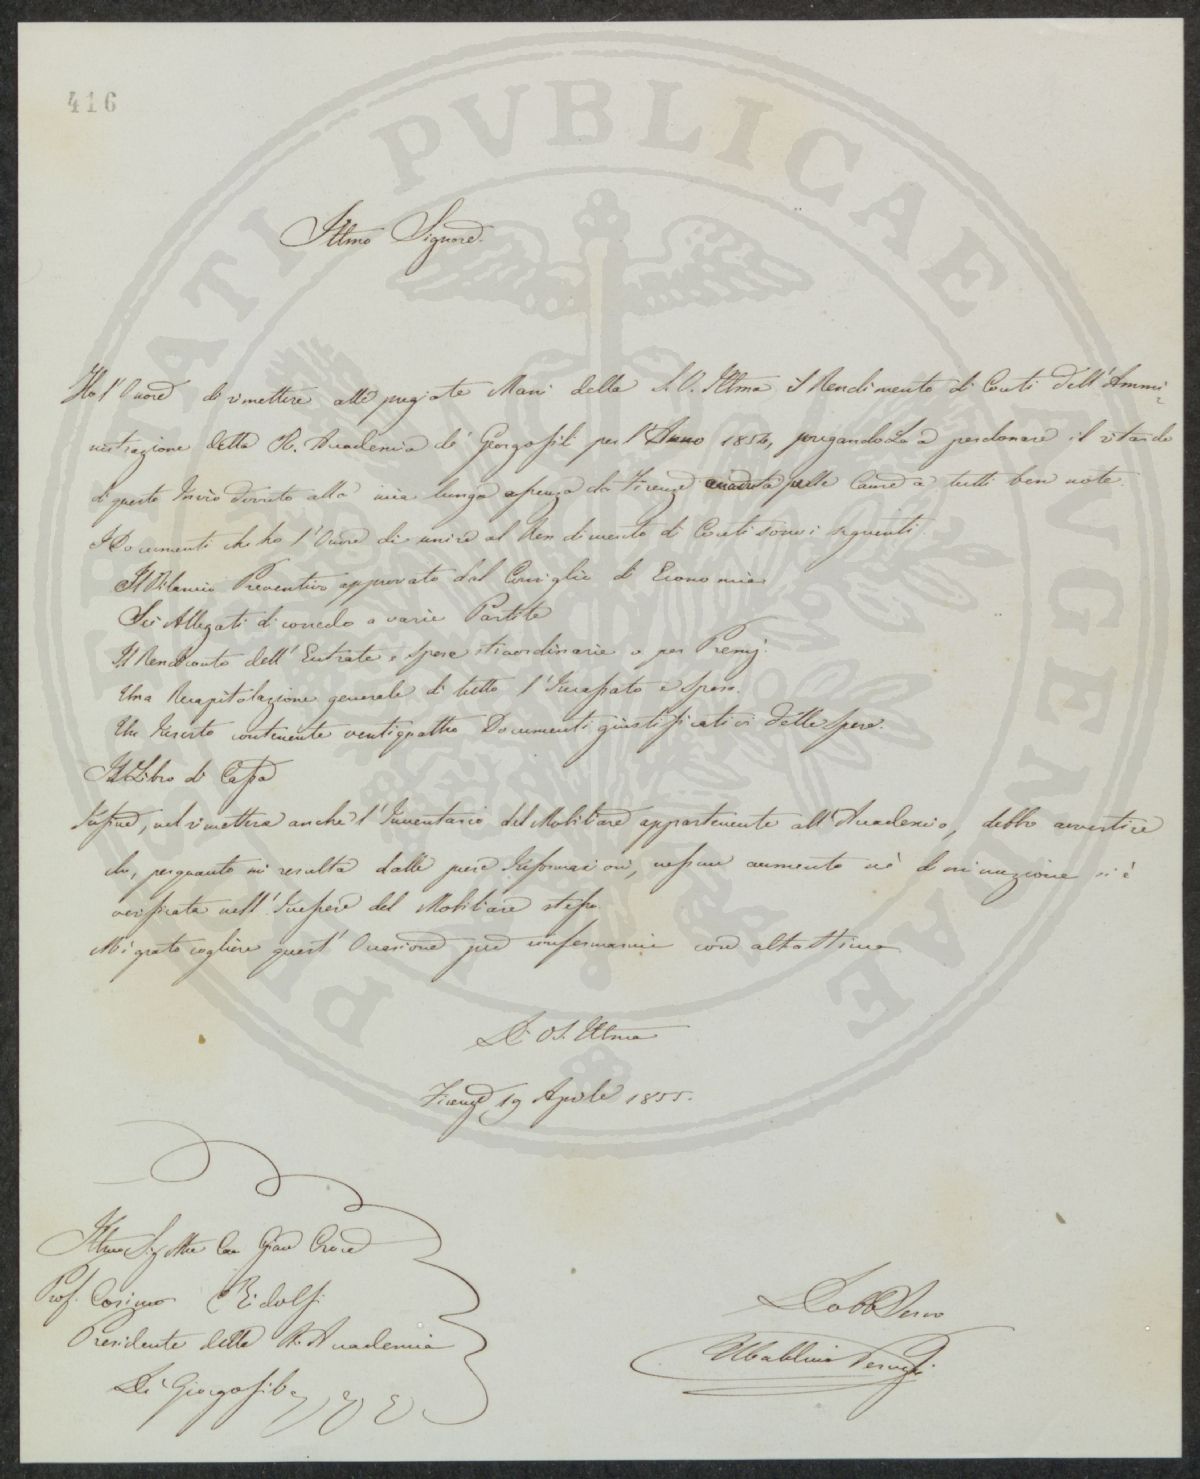 416
PROSPERITATI PVBLICAE AVGENDAE
Illmo Signore.
Ho l'Onore di rimettere alle pregiate Mani della S. V. Illma il Rendimento di Conti dell'Ammi-
nistrazione della R. Accademia de' Georgofili per l'Anno 1854, pregandoLa a perdonare il ritardo
di questo Invio dovuto alla mia lunga assenza da Firenze per le Cause a tutti ben note.
I Documenti che ho l'Onore di unire al Rendimento di Conti sono i seguenti.
Il Bilancio Preventivo approvato dal Consiglio di Economia
Sei Allegati di corredo a varie Partite
Il Rendiconto dell'Entrate e Spese straordinarie o per Premj.
Una Recapitolazione generale di tutto l'Incassato e Speso.
Un Inserto contenente ventiquattro Documenti giustificativi delle Spese.
Il Libro di Cassa
Infine, nel rimettere anche l'Inventario del Mobiliare appartenente all'Accademia, debbo avvertire
che, perquanto mi resulta dalle prese Informazioni, nessun aumento nè diminuzione si è
verificata nell'Insieme del Mobiliare stesso
M'è grato cogliere quest'Occasione per confermarmi con alta stima
Di V. S. Illma
Firenze 19 Aprile 1855.
Illmo Sig. Mse Cav Gran Croce
Prof. Cosimo Ridolfi
Presidente della R. Accademia
De' Georgofili
Dobb Servo
Ubaldino Peruzzi